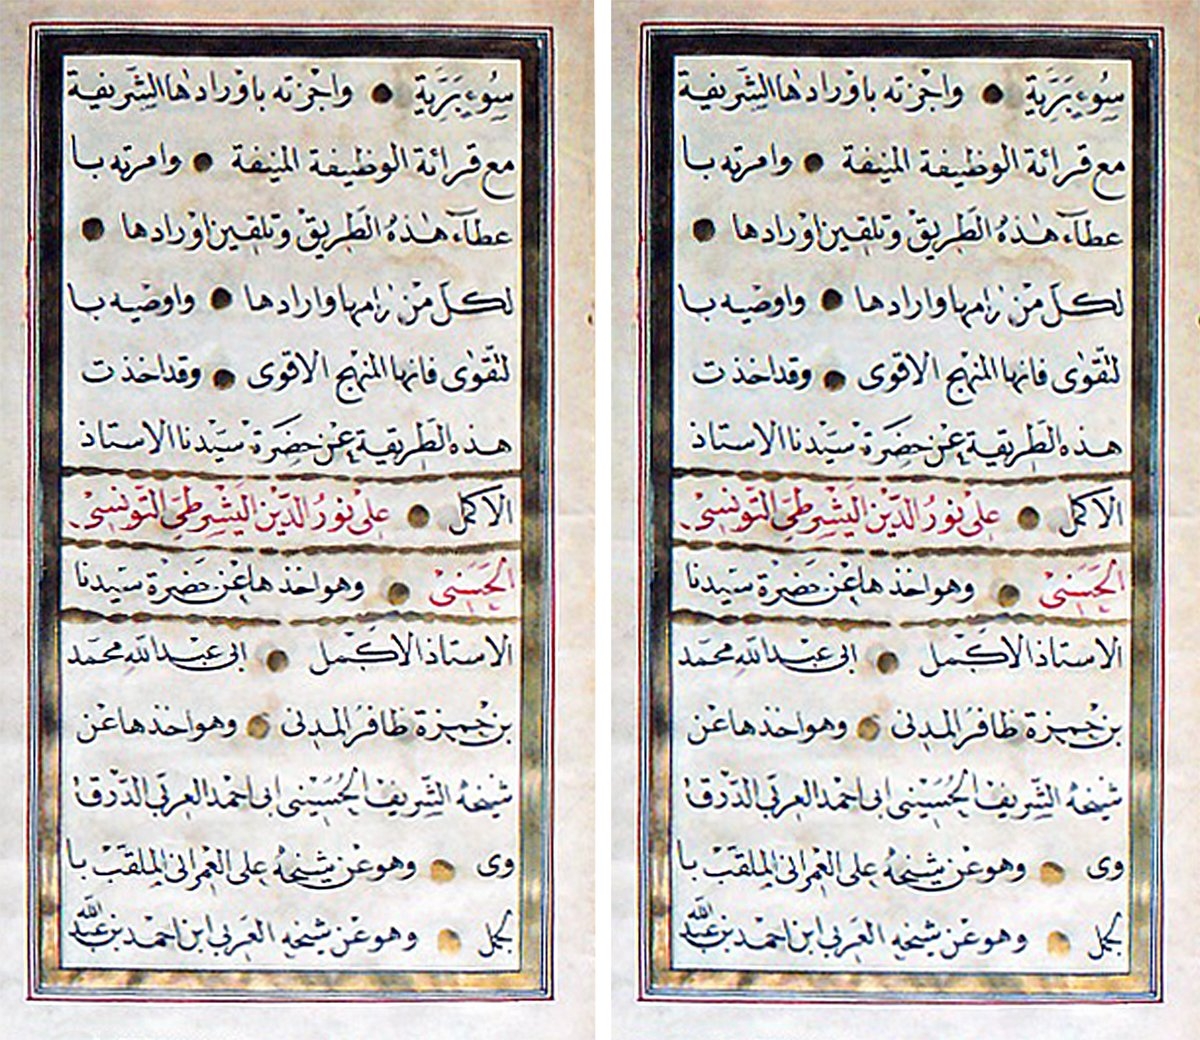 سُوءِ بَرِيَّةِ ● واجْزته باوْرادها الشَّريفية
مع قرائة الوظيفة المنيفة ● وامرته با
عطآء هٰذهُ الطَّريقْ وتلقين اوْرادها ●
لكلّ مَنْ رامها وارادها ● واوصْيه با
لتَّقْوٰى فانها المنْهج الاقوى ● وقد اخذ ت
هذه الطَّريقية عنْ حضرَة سيّدنا الاستاذ
الاكمل ● علىْ نورُ الدّين اليَشْرطيّ التّونسىْ
الحَسَنىْ ● وهو اخذ ها عنْ حَضرْة سيّدنا
الاستاذ الاكْمل ● ابى عبْد اللّه محمّد
بن حْمزة ظافرُ المدنى ● وهو اخذها عنْ
شيخهُ الشّريفْ الحُسَيْنى ابى احمْد العربيّ الدّرْقا
وى ● وهو عنْ شيخهُ على العْمرانى الملقبْ با
لجمل ● وهو عنْ شيخه العَربي ابن احمْد بن عبْد اللّه
سُوءِ بَرِيَّةِ ● واجْزته باوْرادها الشَّريفية
مع قرائة الوظيفة المنيفة ● وامرته با
عطآء هٰذهُ الطَّريقْ وتلقين اوْرادها ●
لكلّ مَنْ رامها وارادها ● واوصْيه با
لتَّقْوٰى فانها المنْهج الاقوى ● وقد اخذ ت
هذه الطَّريقية عنْ حضرَة سيّدنا الاستاذ
الاكمل ● علىْ نورُ الدّين اليَشْرطيّ التّونسىْ
الحَسَنىْ ● وهو اخذ ها عنْ حَضرْة سيّدنا
الاستاذ الاكْمل ● ابى عبْد اللّه محمّد
بن حْمزة ظافرُ المدنى ● وهو اخذها عنْ
شيخهُ الشّريفْ الحُسَيْنى ابى احمْد العربيّ الدّرْقا
وى ● وهو عنْ شيخهُ على العْمرانى الملقبْ با
لجمل ● وهو عنْ شيخه العَربي ابن احمْد بن عبْد اللّه